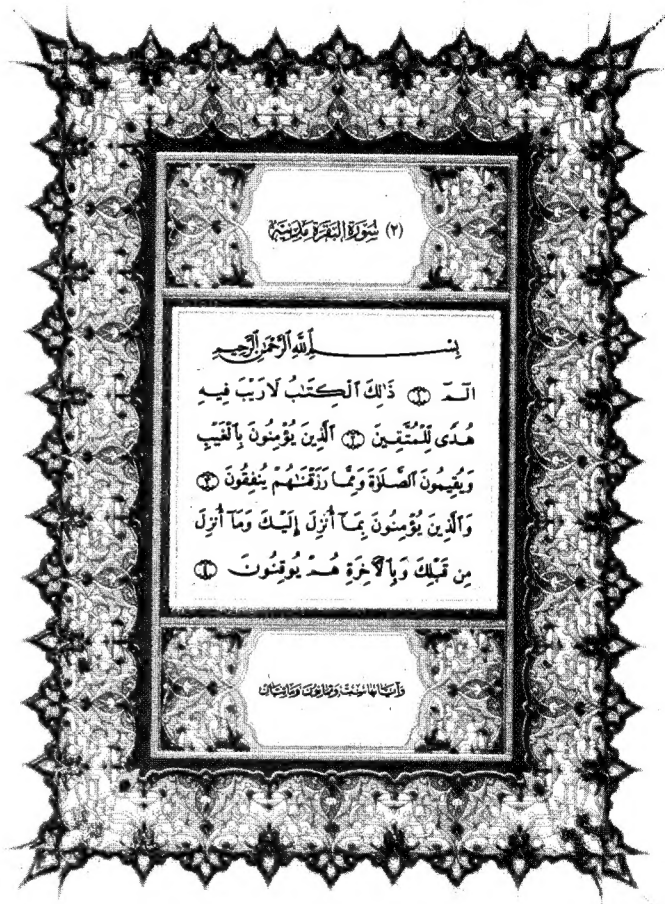 (٢) سُورَةُ البَقَرَةِ مَدَنِيَّة
بِسْمِ ٱللَّهِ ٱلرَّحْمَٰنِ ٱلرَّحِيمِ
الٓمٓ ١ ذَٰلِكَ ٱلْكِتَٰبُ لَا رَيْبَ فِيهِ
هُدًى لِّلْمُتَّقِينَ ٢ ٱلَّذِينَ يُؤْمِنُونَ بِٱلْغَيْبِ
وَيُقِيمُونَ ٱلصَّلَوٰةَ وَمِمَّا رَزَقْنَٰهُمْ يُنفِقُونَ ٣
وَٱلَّذِينَ يُؤْمِنُونَ بِمَآ أُنزِلَ إِلَيْكَ وَمَآ أُنزِلَ
مِن قَبْلِكَ وَبِٱلْءَاخِرَةِ هُمْ يُوقِنُونَ ٤
وَآيَاتُهَا سِتٌّ وَثَمَانُونَ وَمَائَتَانِ